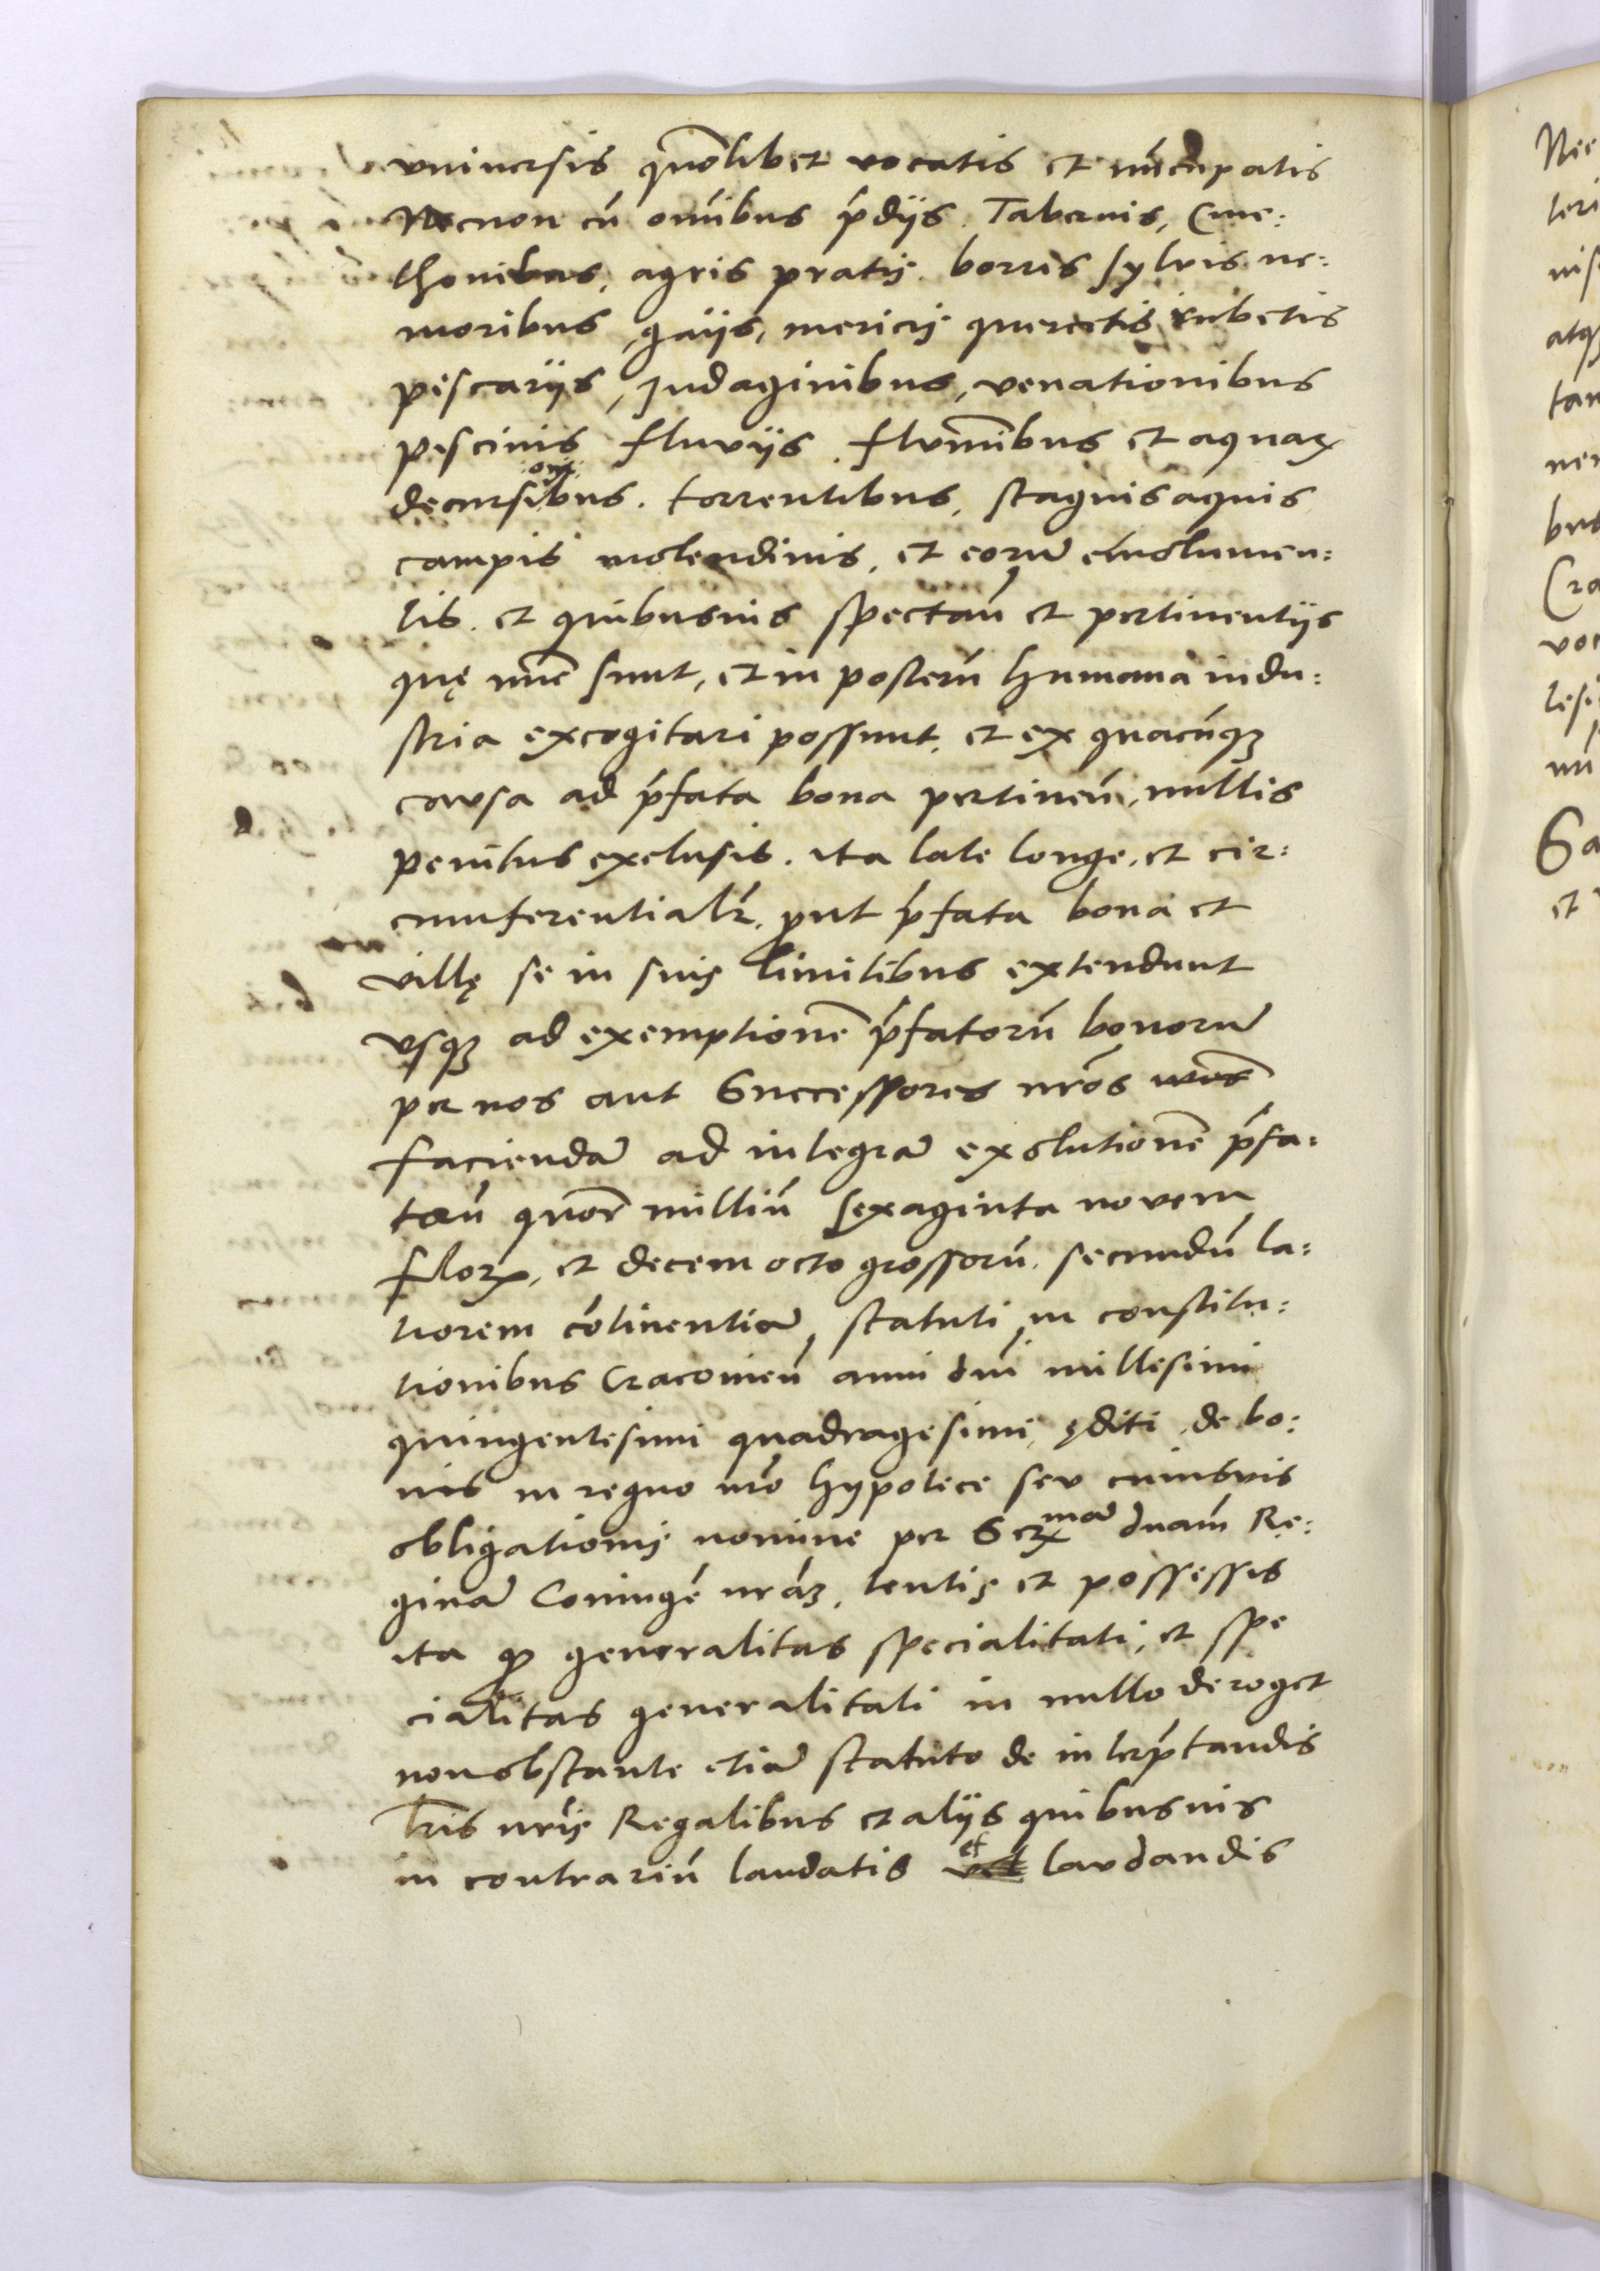 vniuersis quõlibet vocatis et nũcupatis
Necnon cũ omĩbus p̃dijs. Tabernis, Cme:
thonibus, agris pratis. borris sylvis ne:
moribus, gaijs, mericis quercetis rubetis
piscarijs, Indaginibus, venationibus
piscinis fluvijs. flumĩbus et aquaꝝ
decursibus. torrentibus, stagnis aquis
campis molendinis, et eorũ emolumen:
tis. et quibusuis spectañ et pertinentijs
quę nũc sunt, et in posterũ humana indu:
stria excogitari possunt, et ex quacũqꝫ
cavsa ad p̃fata bona pertineñ, nullis
penitus exclusis. ita late longe, et cir:
cumferentialr̃, p̃ut p̃fata bona et
villę se in suis limitibus extendunt
vsqꝫ ad exemptionẽ p̃fatorũ bonorũ
per nos aut Successores nr̃os
faciendã ad integrã exolutionẽ p̃fa:
tañ quor̃ milliũ sexaginta novem
floꝝ, et decem octo grossorũ. secundũ la:
tiorem cõtinentiã, statuti in constitu:
tionibus Cracovieñ anni dñi millesimi
quingentesimi quadragesimi, ęditi, de bo:
nis in regno nr̃o hypotece sev cuiusvis
obligationis nomine per Serᵐᵃ̃ dnãm Re:
ginã Coniugẽ nr̃aꝫ, tentis et possessis
ita ꝙ generalitas specialitati, et spe
cialitas generalitati in nullo deroget
non obstante etiã statuto de interp̃tandis
lr̃is nr̃is Regalibus et alijs quibusuis
in contrariũ laudatis et lavdandis